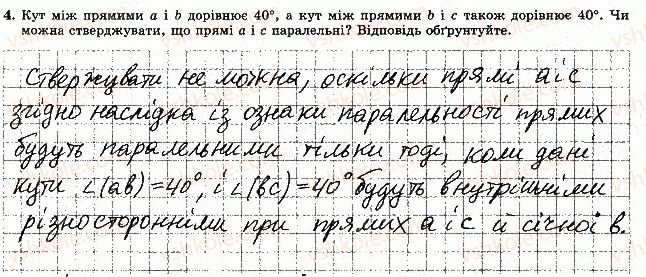 4. Кут між прямими a і b дорівнює 40°, а кут між прямими b і c також дорівнює 40°. Чи
можна стверджувати, що прямі a і c паралельні? Відповідь обґрунтуйте.
Стверджувати не можна, оскільки прямі a і c
згідно наслідка із ознаки паралельності прямих
будуть паралельними тільки тоді, коли дані
кути ∠(ab)=40°, і ∠(bc)=40° будуть внутрішніми
різносторонніми при прямих a і c й січної b.